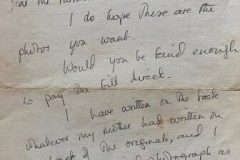 I do hope these are the
photos you want.
Would you be kind enough
to pay the bill direct.
I have written on the back
whatever my mother had written on
back of the originals, and I
photograph as